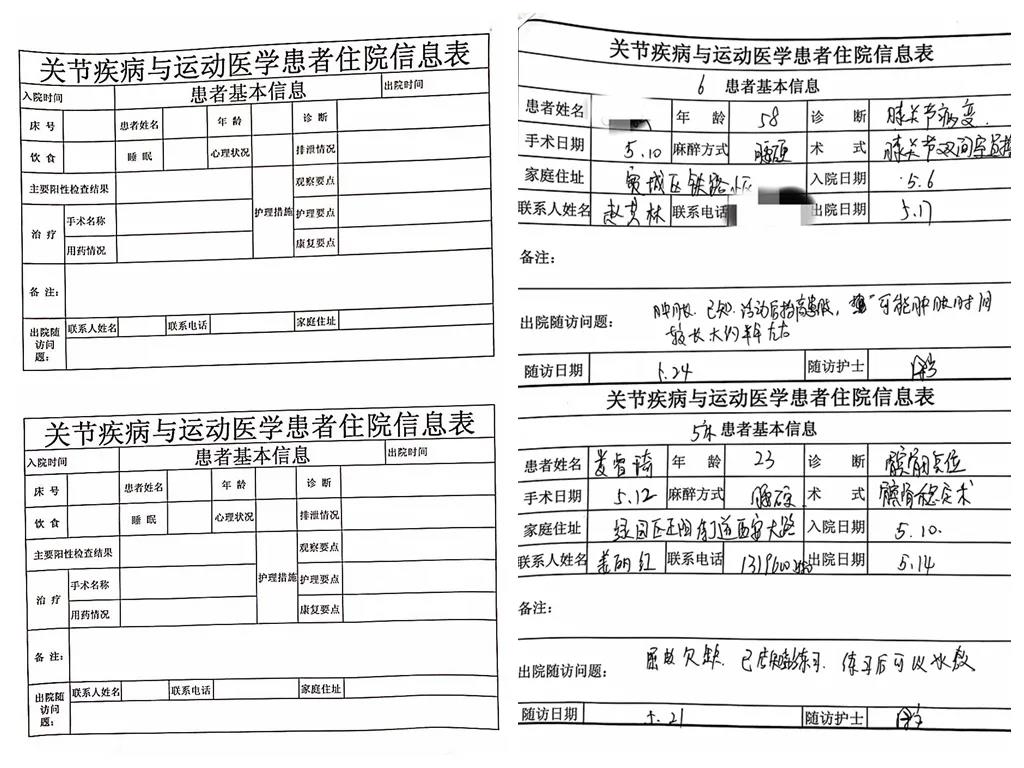 关节疾病与运动医学患者住院信息表
入院时间 患者基本信息 出院时间
床 号 患者姓名 年 龄 诊 断
饮 食 睡 眠 心理状况 排泄情况
主要阳性检查结果 护理措施 观察要点
治 疗 手术名称 护理要点
用药情况 康复要点
备 注：
出院随访问题： 联系人姓名 联系电话 家庭住址
关节疾病与运动医学患者住院信息表
入院时间 患者基本信息 出院时间
床 号 患者姓名 年 龄 诊 断
饮 食 睡 眠 心理状况 排泄情况
主要阳性检查结果 护理措施 观察要点
治 疗 手术名称 护理要点
用药情况 康复要点
备 注：
出院随访问题： 联系人姓名 联系电话 家庭住址
关节疾病与运动医学患者住院信息表
6 患者基本信息
患者姓名 年 龄 58 诊 断 膝关节病变
手术日期 5.10 麻醉方式 腰硬 术 式 膝关节双间室置换
家庭住址 宽城区铁路 入院日期 5.6
联系人姓名 赵 林 联系电话 出院日期 5.17
备注：
出院随访问题： 肿胀. 已知. 活动后抬高患肢, 可能肿胀时间
较长大约半年左右
随访日期 5.24 随访护士
关节疾病与运动医学患者住院信息表
5床 患者基本信息
患者姓名 姜 琦 年 龄 23 诊 断 髌骨脱位
手术日期 5.12 麻醉方式 腰硬 术 式 髌骨稳定术
家庭住址 绿园区正阳街道西安大路 入院日期 5.10.
联系人姓名 姜丽红 联系电话 1319600 出院日期 5.14
备注：
出院随访问题： 屈曲欠缺. 已告知 练习. 练习后可以冰敷
随访日期 5.21 随访护士